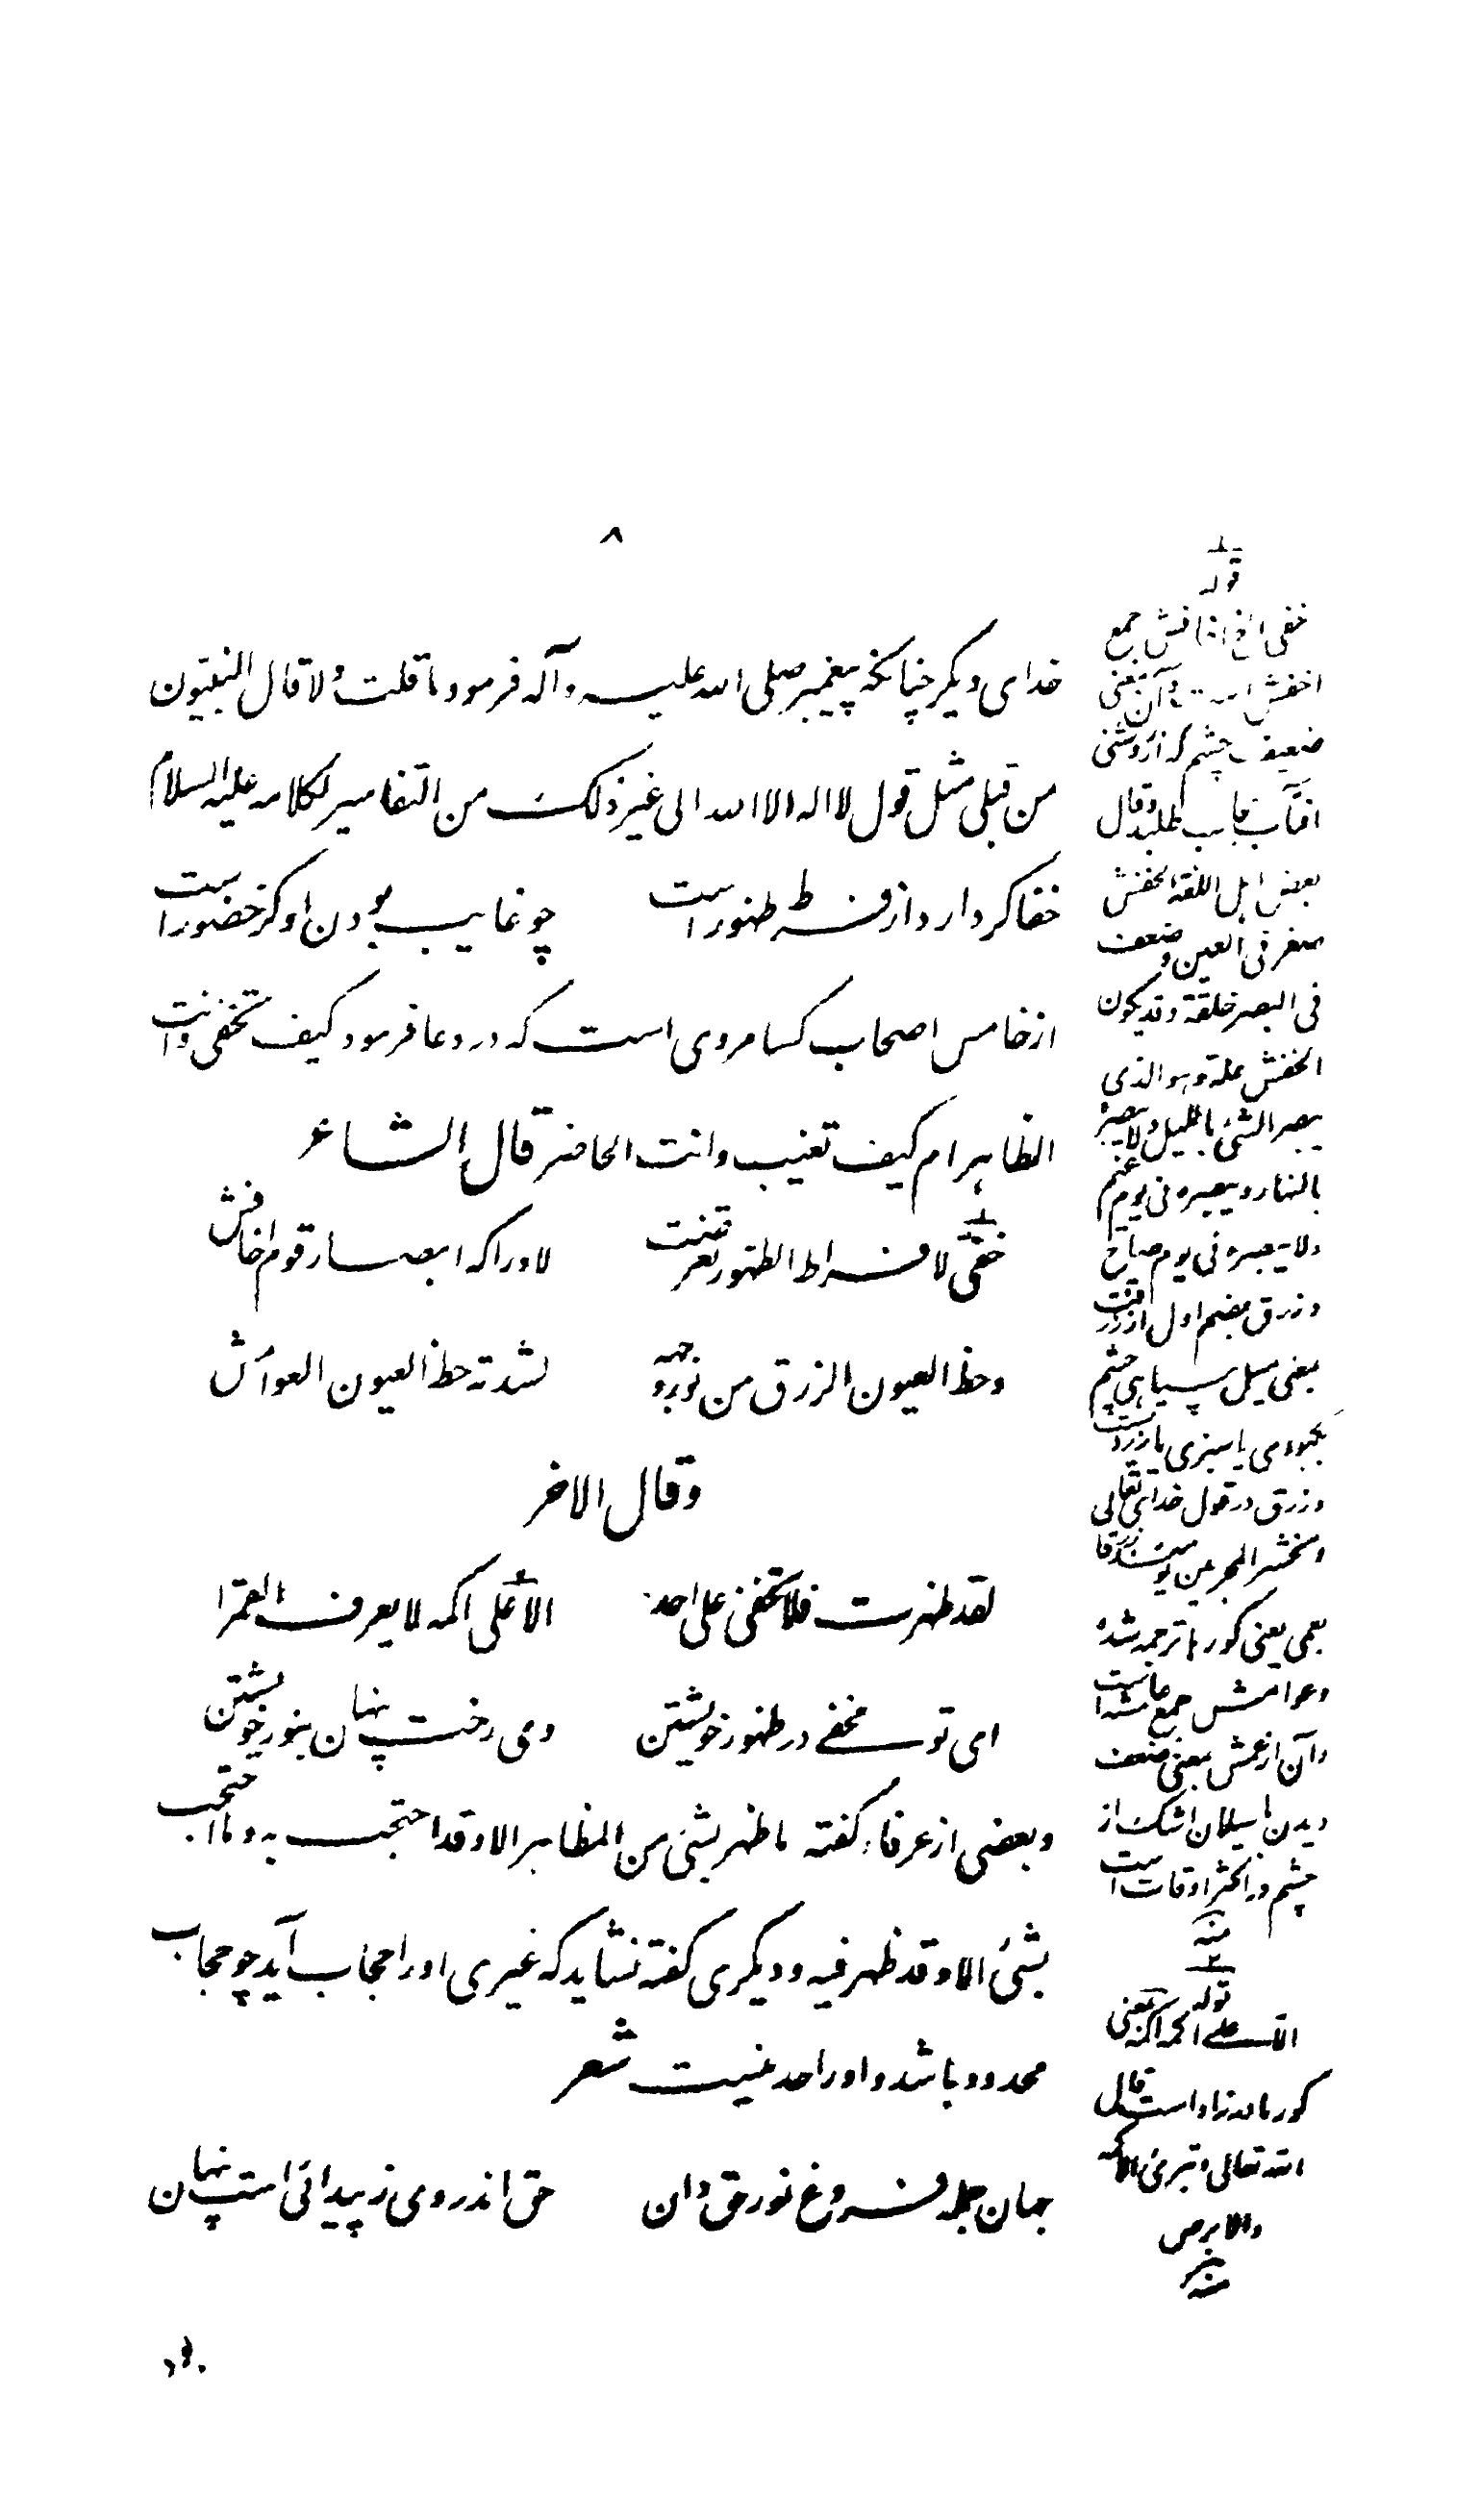 ۸
خدای دیگر چنانکه پیغمبر صلی الله علیه و آله فرمود ما قلت و لا قال النبیّون
من قبلی مثل قول لا اله الا الله الی غیر ذلک من التفاسیر لکلامه علیه السلام
خفا گر دارد از فرط ظهور است چو غایب بودن او کز حضور است
از خامس اصحاب کسا مروی است که در دعا فرمود کیف تخفی و انت
الظاهر ام کیف تغیب و انت الحاضر قال الشاعر
خفیّ لافراط الظهور تعرضت لادراکه ابصار قوم اخافش
و حظ العیون الزرق من نور وجهه لشدته حظ العیون العوامش
و قال الاخر
لقد ظهرت فلا تخفی علی احد الا علی اکمه لا یعرف القمرا
ای تو مخفی در ظهور خویشتن وی رخت پنهان بنور خویشتن
و بعضی از عرفاء گفته ما ظهر بشیء من المظاهر الا و قد احتجب به و ما احتجب
بشیء الا و قد ظهر فیه و دیگری گفته نشاید که غیری او را حجاب آید چو حجاب
محدود باشد و او را حد نیست شعر
جهان جمله فروغ نور حق دان حق اندر وی ز پیدائی است پنهان
قوله
خفی الخ اخافش جمع
اخفش است و آن بمعنی
ضعیف چشم که از روشنی
افتاب غایب طلبد و قال
بعض اهل اللغة الخفش
صغر فی العین و ضعف
فی البصر خلقة و قد یکون
الخفش علة و هو الذی
یبصر الشیء باللیل و لا یبصره
بالنهار و یبصره فی یوم غیم
و لا یبصره فی یوم صاح
و زرق بضم اول از زرقت
بمعنی میل سیاهی چشم
بکبودی یا سبزی یا زردیست
و زرق در قول خدایتعالی
و نحشر المجرمین یومئذ زرقا
بعمی یعنی کورها ترجمه شده
و عوامش جمع عامشه است
و آن از عمش بمعنی ضعف
دیدن با سیلان اشک از
چشم در اکثر اوقات است
منه
قوله
الا علی اکمه اکمه بمعنی
کور مادرزاد است قال
الله تعالی و تبرئ الاکمه
و الابرص
منه